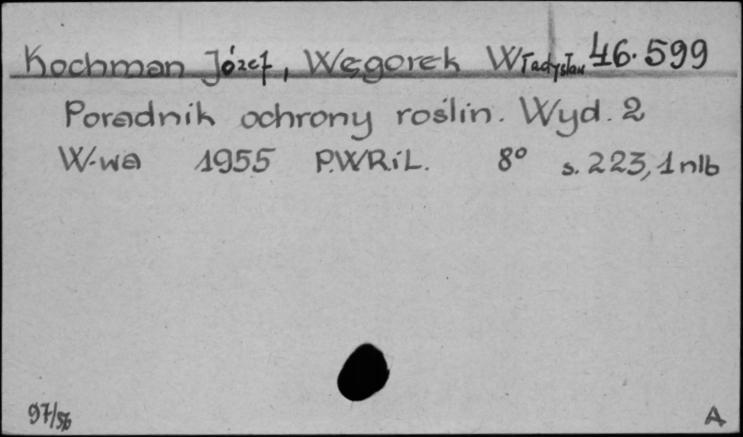 Kochman Józef, Węgorek Władysław 46.599
Poradnik ochrony roślin. Wyd. 2
W-wa 1955 P.W.R.iL. 8° s. 223, 1 nlb
97/56 A